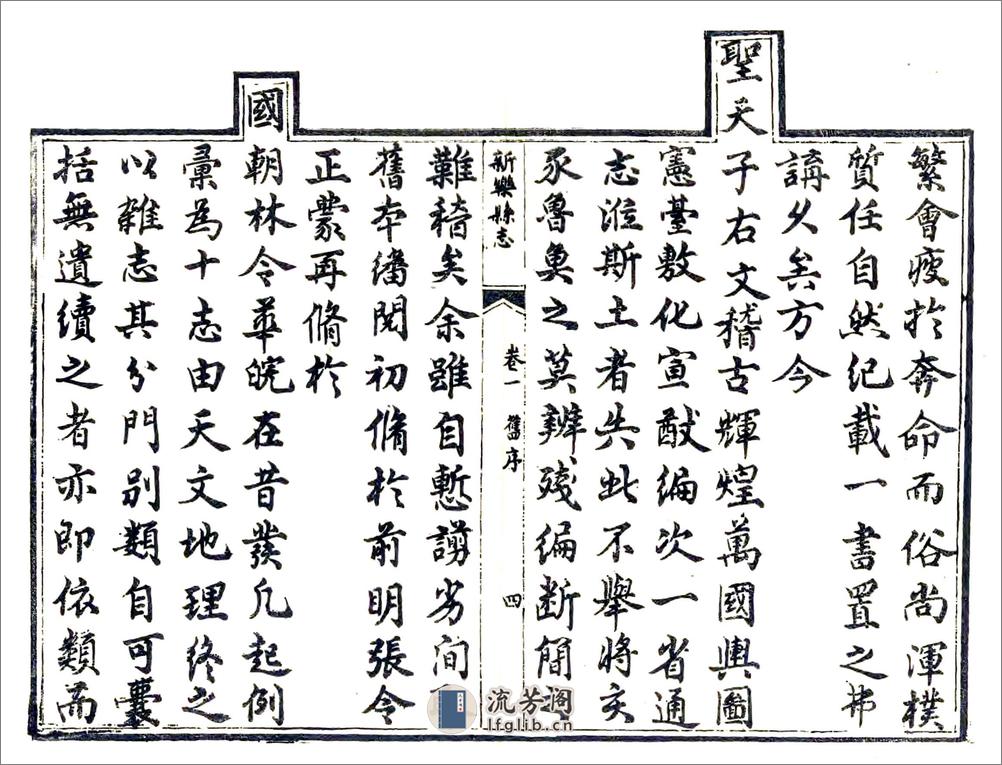 繁會疲於奔命而俗尚渾樸
質任自然紀載一書置之弗
講久矣方今
聖天子右文稽古輝煌萬國輿圖
憲臺敷化宣猷編次一省通
志涖斯土者失此不舉將亥
豕魯魚之莫辨殘編斷簡
新樂縣志 卷一 舊序 四
難稽矣余雖自慙譾劣間
舊本繙閱初脩於前明張令
正蒙再脩於
國朝林令華皖在昔發凡起例
彙為十志由天文地理終之
以雜志其分門別類自可囊
括無遺續之者亦即依類而
流芳阁
lfglib.cn